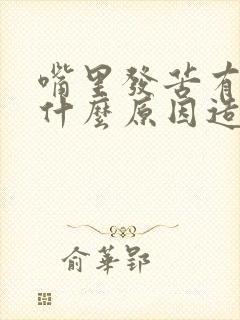 嘴里發苦有
什麼原因造
俞華郢